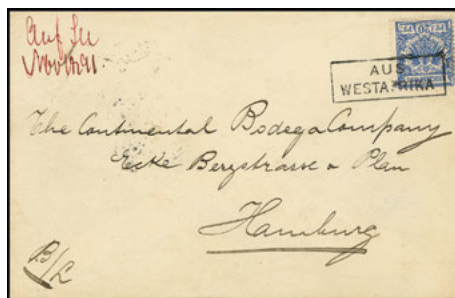 Auf See
Nov 1891
20
AUS
WESTAFRIKA
The Continental Bodega Company
Ecke Bergstrasse & Plan
Hamburg
B/L